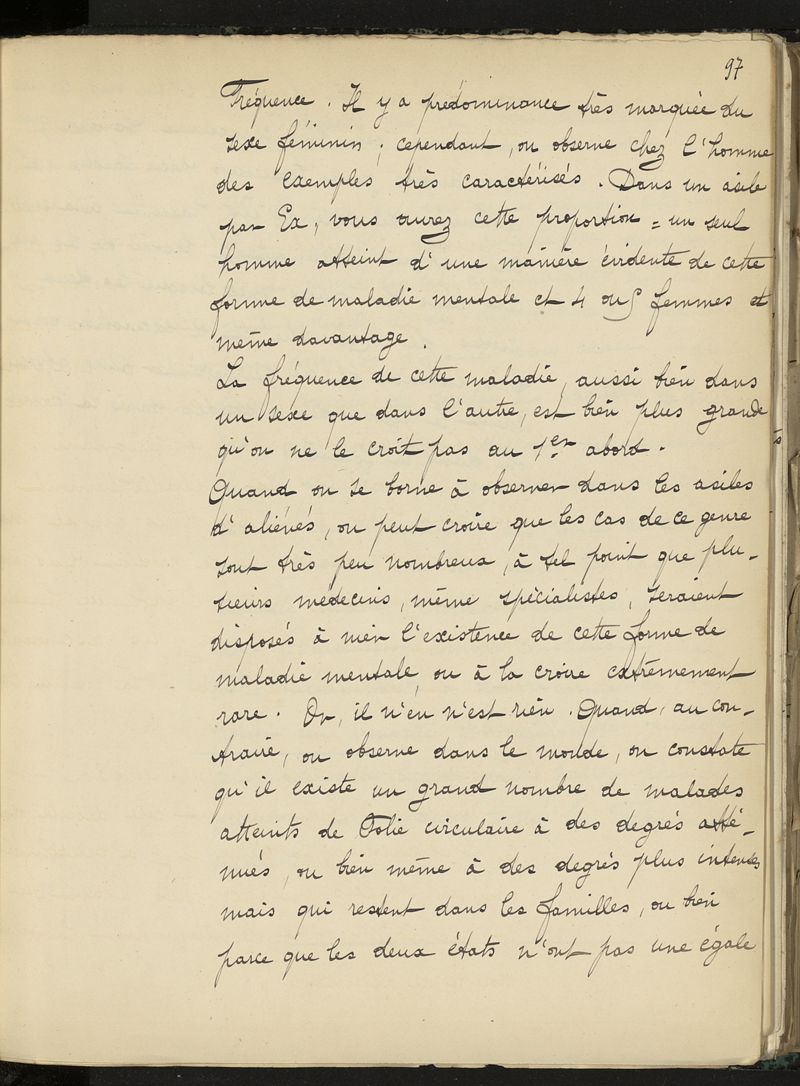 97
Fréquence. Il y a prédominance très marquée du
sexe féminin ; cependant, on observe chez l'homme
des exemples très caractérisés. Dans un asile
par Ex, vous aurez cette proportion = un seul
homme atteint d'une manière évidente de cette
forme de maladie mentale et 4 ou 5 femmes et
même davantage.
La fréquence de cette maladie, aussi bien dans
un sexe que dans l'autre, est bien plus grande
qu'on ne le croit pas au 1er abord.
Quand on se borne à observer dans les asiles
d'aliénés, on peut croire que les cas de ce genre
sont très peu nombreux, à tel point que plu-
sieurs médecins, même spécialistes, seraient
disposés à nier l'existence de cette forme de
maladie mentale, ou à la croire extrêmement
rare. Or, il n'en n'est rien. Quand, au con-
traire, on observe dans le monde, on constate
qu'il existe un grand nombre de malades
atteints de Folie circulaire à des degrés atté-
nués, ou bien même à des degrés plus intenses
mais qui restent dans les familles, ou bien
parce que les deux états n'ont pas une égale